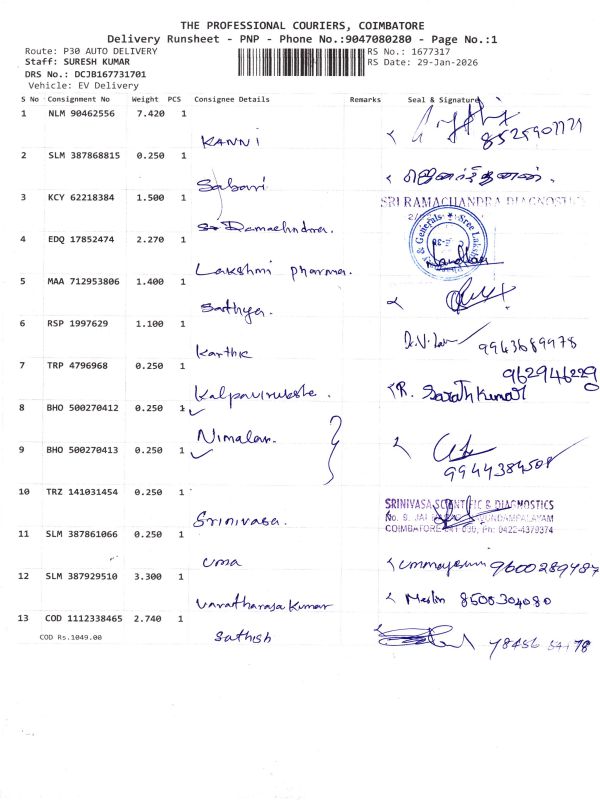 THE PROFESSIONAL COURIERS, COIMBATORE
Delivery Runsheet - PNP - Phone No.:9047080280 - Page No.:1
Route: P30 AUTO DELIVERY RS No.: 1677317
Staff: SURESH KUMAR RS Date: 29-Jan-2026
DRS No.: DCJB167731701
Vehicle: EV Delivery
S No Consignment No Weight PCS Consignee Details Remarks Seal & Signature
1 NLM 90462556 7.420 1
KANNI
2 SLM 387868815 0.250 1
Sabari
3 KCY 62218384 1.500 1 SRI RAMACHANDRA DIAGNOSTICS
4 EDQ 17852474 2.270 1
Lakshmi pharma.
5 MAA 712953806 1.400 1
Sathya.
6 RSP 1997629 1.100 1
Karthic 9943689978
7 TRP 4796968 0.250 1
R. Sarath Kumar
8 BHO 500270412 0.250 1
Nimalan.
9 BHO 500270413 0.250 1
9944384508
10 TRZ 141031454 0.250 1
SRINIVASA SCIENTIFIC & DIAGNOSTICS
Srinivasa.
COIMBATORE Ph: 0422-4379374
11 SLM 387861066 0.250 1
Uma 9600289487
12 SLM 387929510 3.300 1
Varatharasa Kumar Merlin 8500304080
13 COD 1112338465 2.740 1
COD Rs.1049.00 Sathish